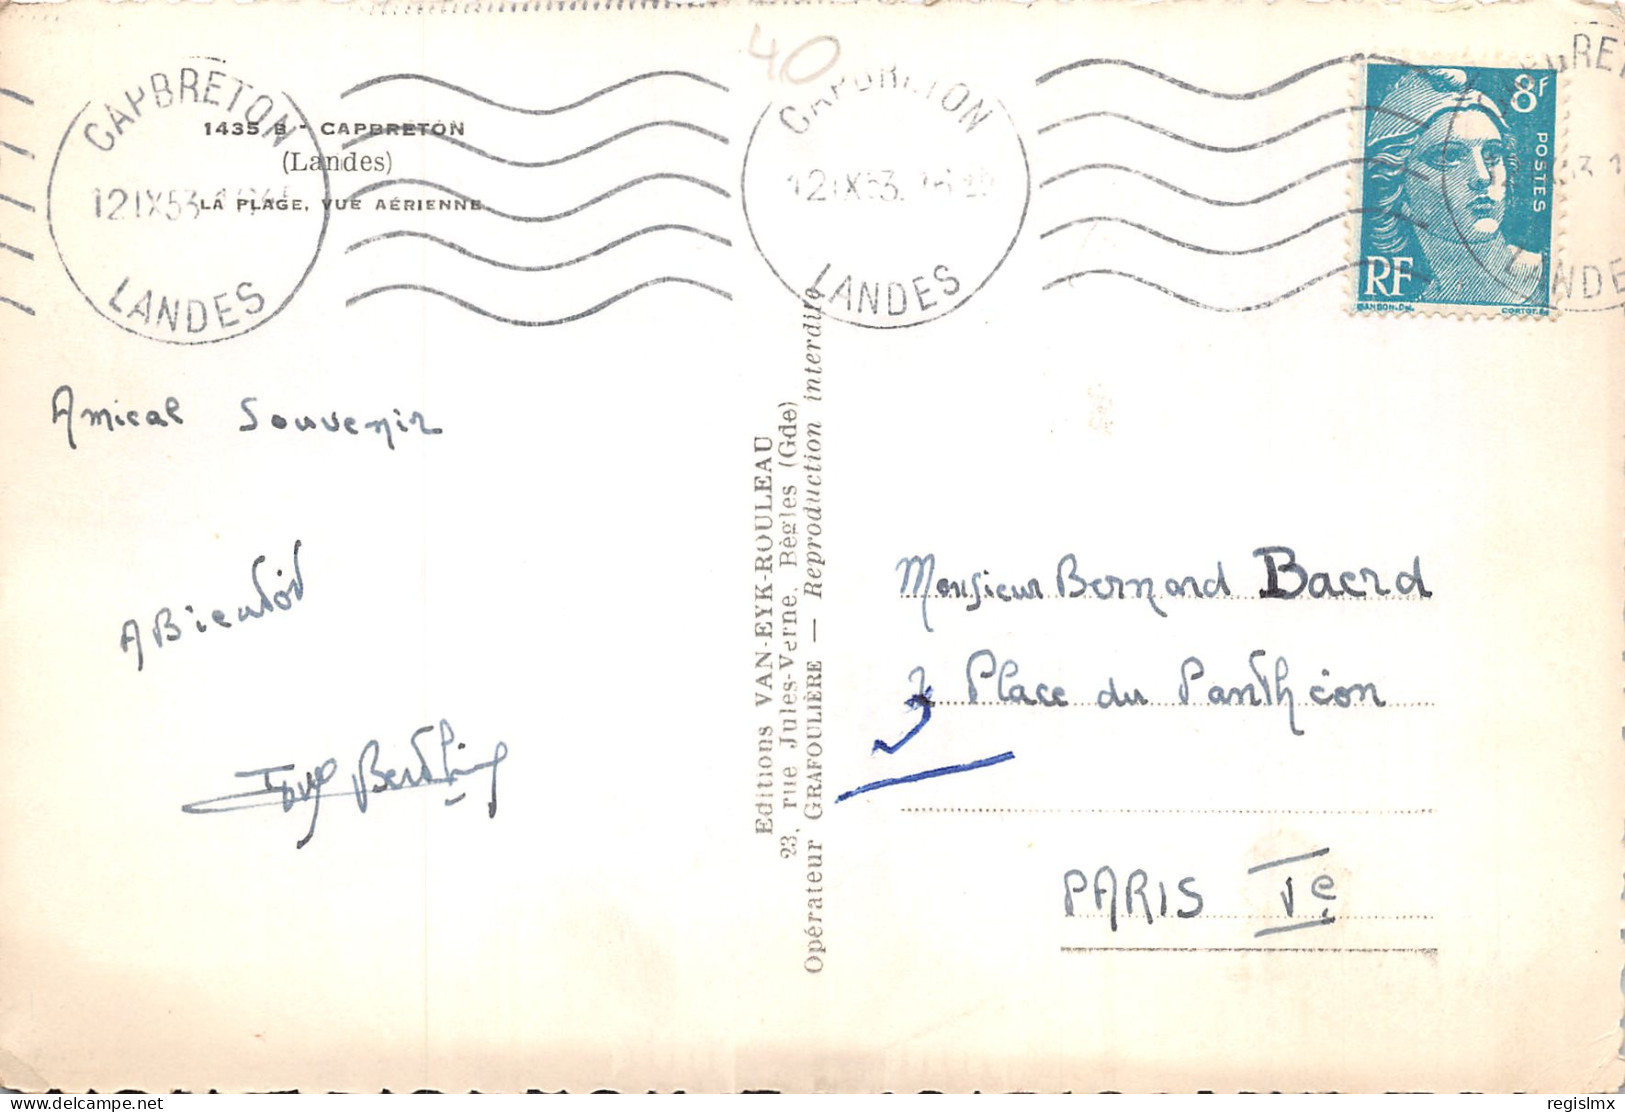 40
CAPBRETON
12 IX 53
LANDES
1435 B - CAPBRETON
(Landes)
LA PLAGE, VUE AÉRIENNE
CAPBRETON
12 IX 53.
LANDES
8F
POSTES
RF
GANDON.Del.
CORTOT.Sc
LANDE
Amical Souvenir
A Bientôt
Guy
Editions VAN-EYK-ROULEAU
23, rue Jules-Verne, Bègles (Gde)
Opérateur GRAFOULIÈRE — Reproduction interdite
Monsieur Bernard Bacrd
3 Place du Panthéon
PARIS Ve
delcampe.net
regislmx